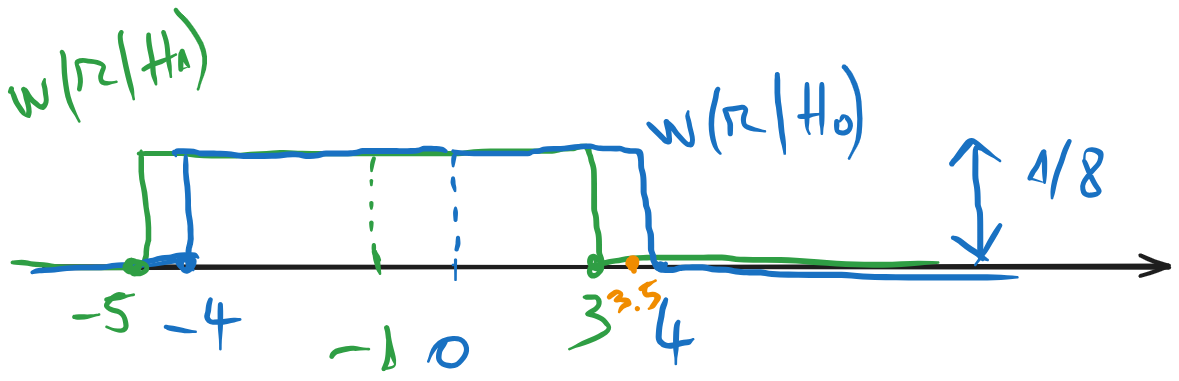 w(r|H1)
w(r|H0)
1/8
-5
-4
-1
0
3
3.5
4